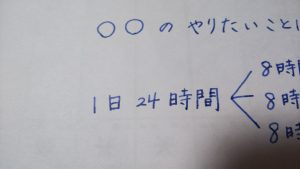 ○○のやりたいこと
1日 24時間
8時間
8時間
8時